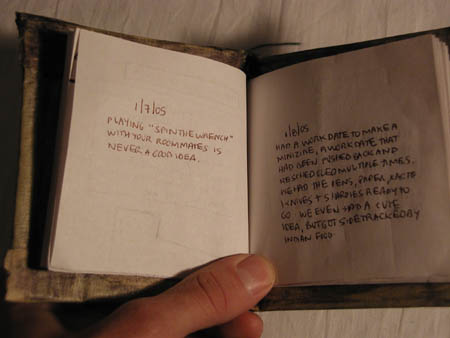 1/7/05
PLAYING "SPIN THE WRENCH"
WITH YOUR ROOMMATES IS
NEVER A GOOD IDEA.
1/8/05
HAD A WORK DATE TO MAKE A
MINIZINE, A WORK DATE THAT
HAD BEEN PUSHED BACK AND
RESCHEDULED MULTIPLE TIMES.
WE HAD THE PENS, PAPER, XACTO
KNIVES + SHARPIES READY TO
GO. WE EVEN HAD A CUTE
IDEA, BUT GOT SIDETRACKED BY
INDIAN FOOD.